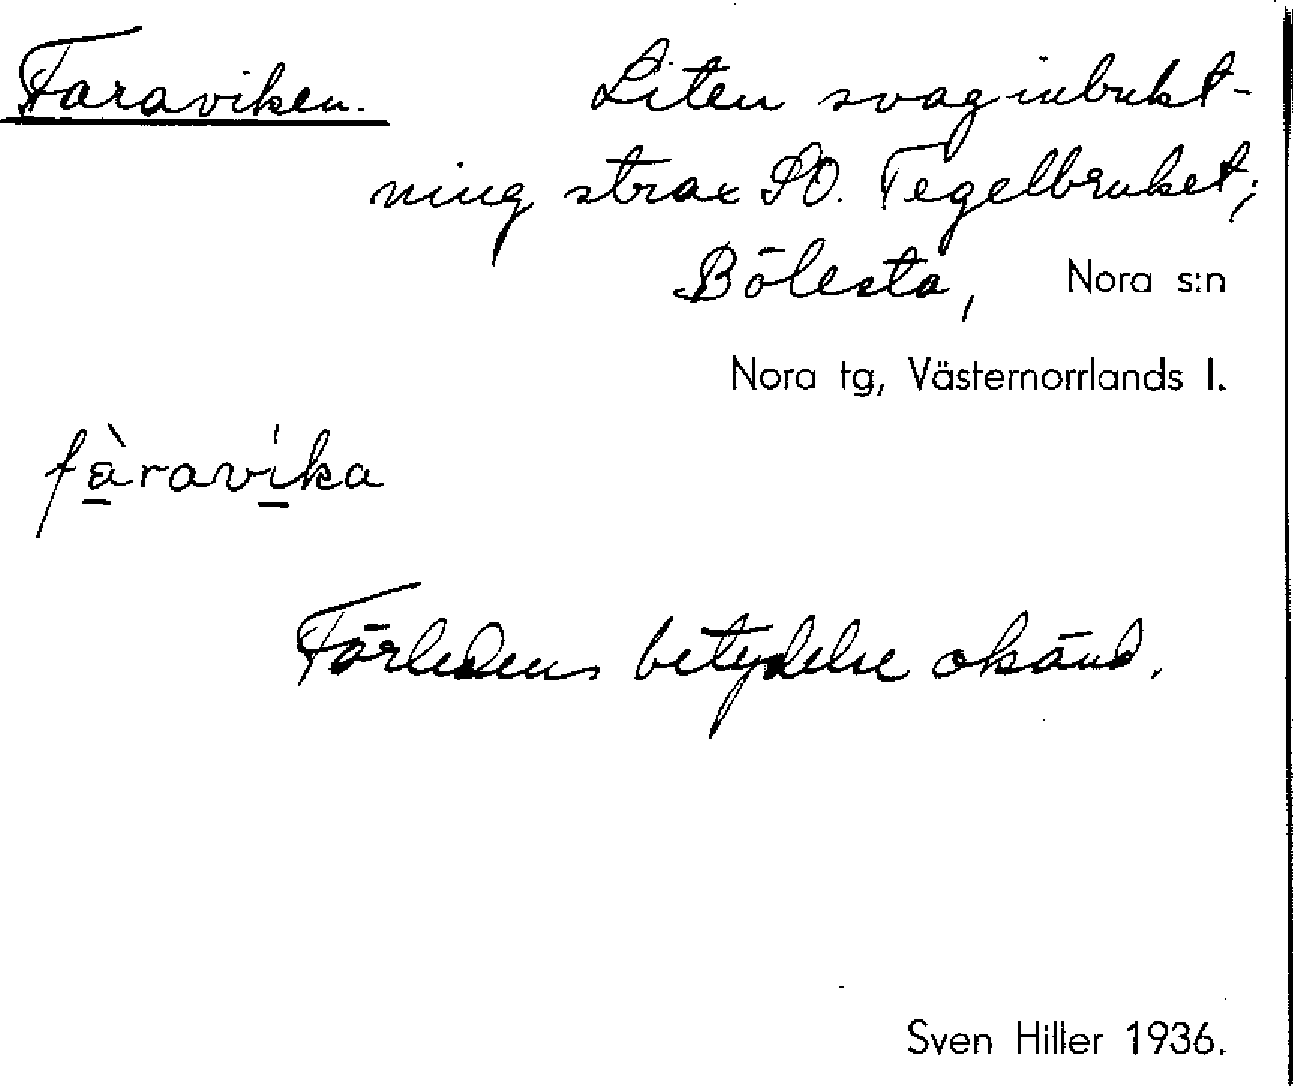 Faraviken. Liten svag inbukt-
ning strax SO. Tegelbruket;
Bölesta, Nora s:n
Nora tg, Västernorrlands l.
fà̱raví̱ka
Förledens betydelse okänd.
Sven Hiller 1936.